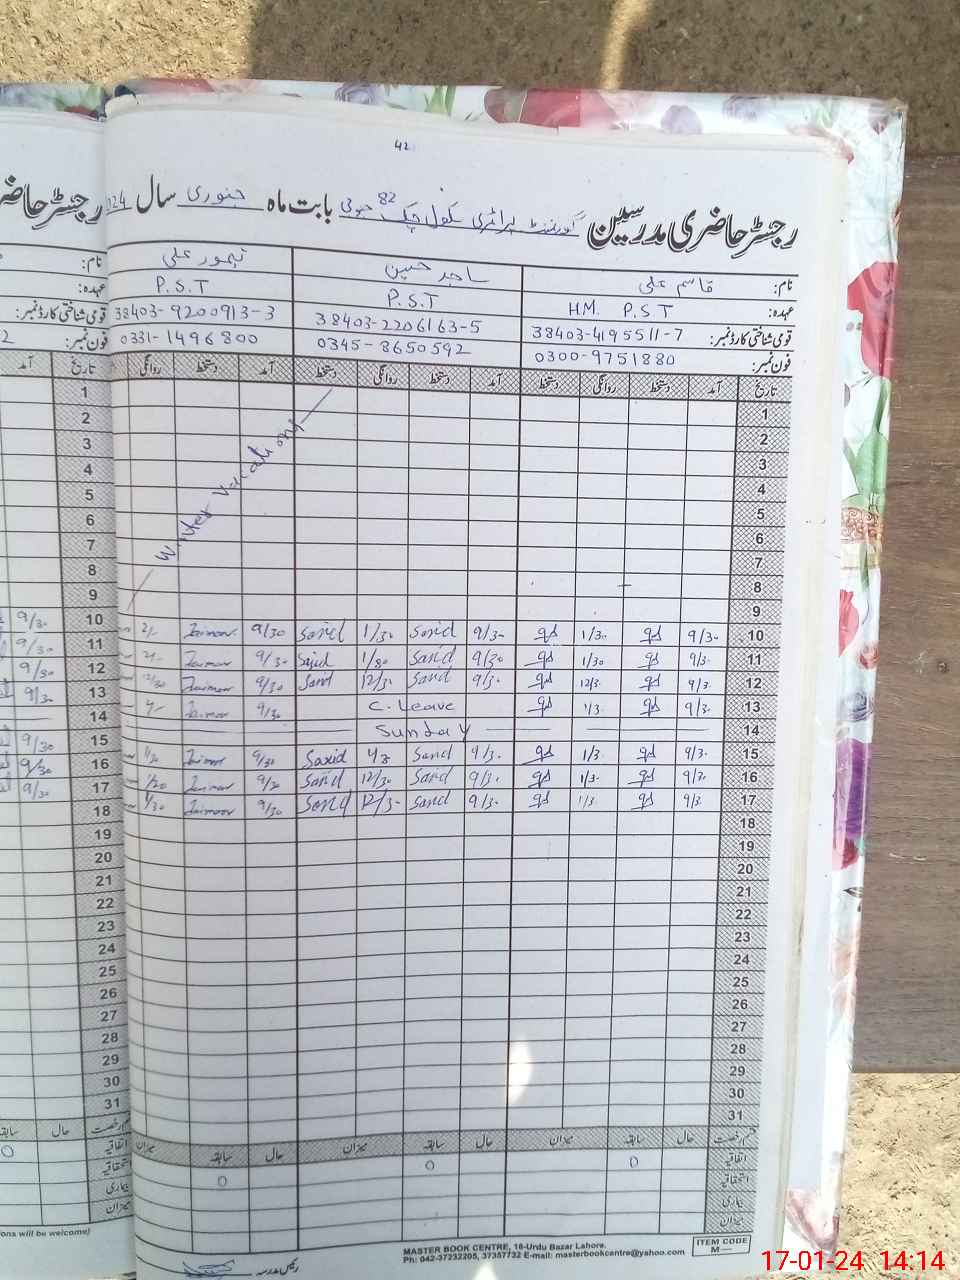 42
رجسٹر حاضری مدرسین گورنمنٹ پرائمری سکول چک 82 جنوبی بابت ماہ جنوری سال 024
نام: قاسم علی ساجد حسین تیمور علی
عہدہ: HM. P.S.T P.S.T P.S.T
قومی شناختی کارڈ نمبر: 38403-4195511-7 38403-2206163-5 38403-9200913-3
فون نمبر: 0300-9751880 0345-8650592 0331-1496800
تاریخ آمد دستخط روانگی دستخط آمد دستخط روانگی دستخط آمد دستخط روانگی
1
2
3
4
5
6
7
8
9
Winter Vacations
10 9/30 1/30 9/30 Sajid 1/30 Sajid 9/30 Taimoor 2/-
11 9/3. 1/30 9/30 Sajid 1/30 Sajid 9/30 Taimoor
12 9/3. 12/3. 9/3. Sajid 12/3. Sajid 9/30 Taimoor 12/30
13 9/3. 1/3. C. Leave 9/30 Taimoor
14 Sunday
15 9/3. 1/3. 9/3. Sajid Sajid 9/30 Taimoor 1/30
16 1/3. 9/3. Sajid 12/30 Sajid 9/30 Taimoor 1/30
17 9/3. 1/3 9/3. Sajid 12/3. Sajid 9/30 Taimoor 1/30
18
19
20
21
22
23
24
25
26
27
28
29
30
31
قسم رخصت حال سابقہ میزان حال سابقہ میزان حال سابقہ میزان
اتفاقیہ 0 0 0
استحقاقیہ
بیماری
میزان
MASTER BOOK CENTRE, 16-Urdu Bazar Lahore.
Ph: 042-37232205, 37357732 E-mail: masterbookcentre@yahoo.com
ITEM CODE
M—
رئیس مدرسہ
ons will be welcome)
17-01-24 14:14